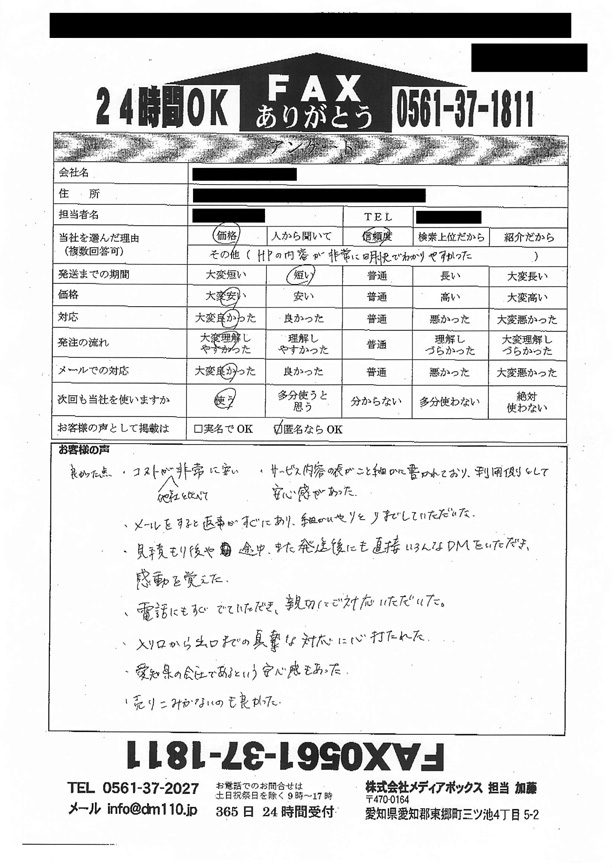 24時間OK
FAX
ありがとう
0561-37-1811
アンケート
会社名
住 所
担当者名 TEL
当社を選んだ理由 (複数回答可) 価格 人から聞いて 信頼度 検索上位だから 紹介だから
その他 ( HPの内容が非常に明快でわかりやすかった )
発送までの期間 大変短い 短い 普通 長い 大変長い
価格 大変安い 安い 普通 高い 大変高い
対応 大変良かった 良かった 普通 悪かった 大変悪かった
発注の流れ 大変理解しやすかった 理解しやすかった 普通 理解しづらかった 大変理解しづらかった
メールでの対応 大変良かった 良かった 普通 悪かった 大変悪かった
次回も当社を使いますか 使う 多分使うと思う 分からない 多分使わない 絶対使わない
お客様の声として掲載は □実名でOK ☑匿名ならOK
お客様の声
良かった点 ・コストが非常に安い ・サービス内容の表がこと細かに書かれており、利用側として
他社と比べて 安心感があった。
・メールをすると返事がすぐにあり、細かいやりとりまでしていただいた。
・見積もり後や 途中、また発送後にも直接いろんなDMをいただき、
感動を覚えた。
・電話にもすぐでていただき、親切にご対応いただいた。
・入り口から出口までの真摯な対応に心打たれた。
・愛知県の会社であるという安心感もあった。
・売りこみがないのも良かった。
FAX0561-37-1811
TEL 0561-37-2027
メール info@dm110.jp
お電話でのお問合せは
土日祝祭日を除く9時〜17時
365日24時間受付
株式会社メディアボックス 担当 加藤
〒470-0164
愛知県愛知郡東郷町三ツ池4丁目5-2